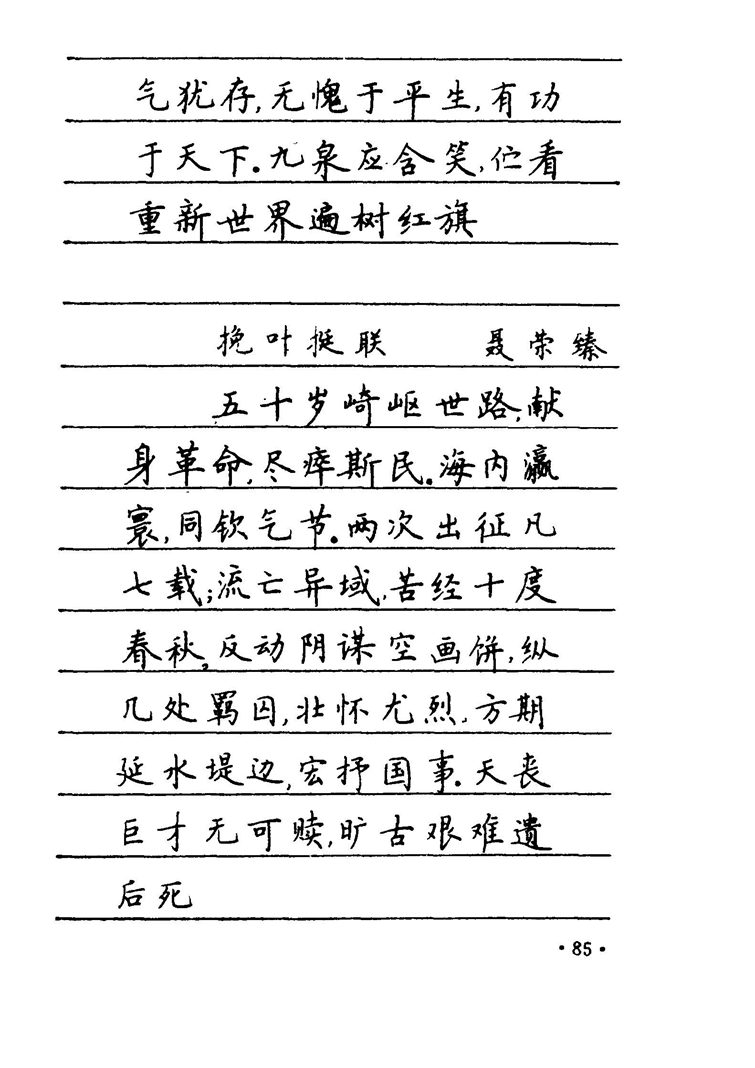 气犹存,无愧于平生,有功
于天下.九泉应含笑,伫看
重新世界遍树红旗
挽叶挺联 聂荣臻
五十岁崎岖世路,献
身革命,尽瘁斯民.海内瀛
寰,同钦气节.两次出征凡
七载;流亡异域,苦经十度
春秋,反动阴谋空画饼,纵
几处羁囚,壮怀尤烈.方期
延水堤边,宏抒国事.天丧
巨才无可赎,旷古艰难遗
后死
·85·